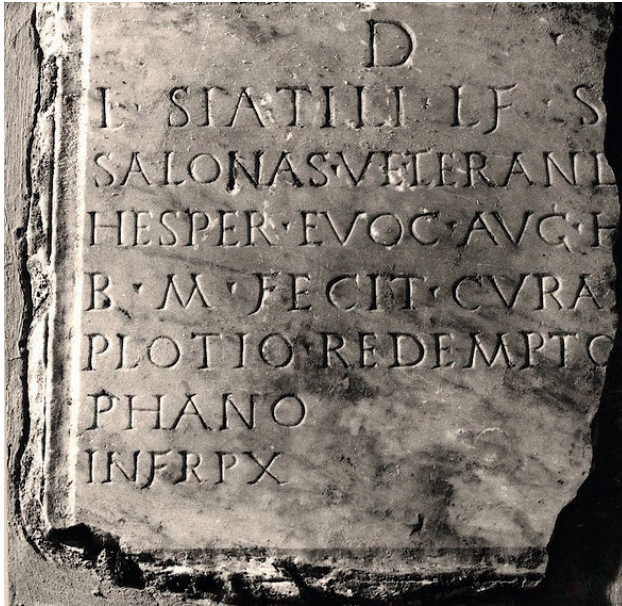 D
L · STATILI · L F · S
SALONAS · VETERANI
HESPER · EVOC · AVG · H
B · M · FECIT · CVRA
PLOTIO · REDEMPTO
PHANO
INFRPX